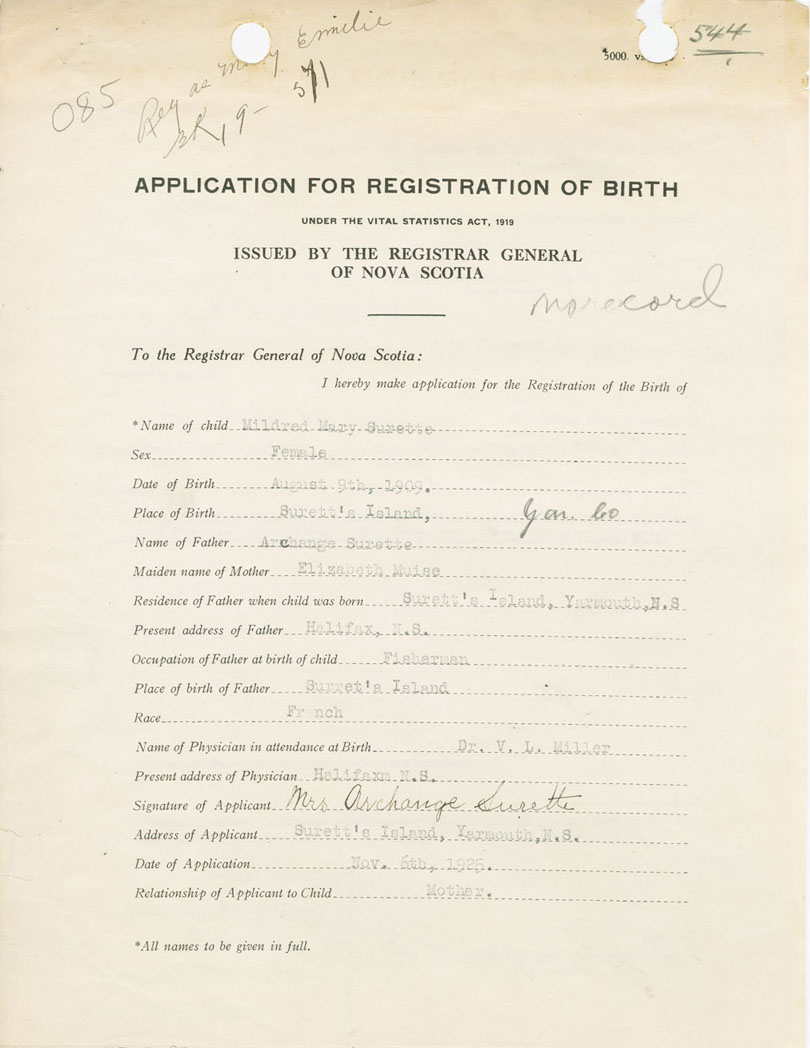 544
5000.
Emilie
Reg as
085
511
BK 19-
APPLICATION FOR REGISTRATION OF BIRTH
UNDER THE VITAL STATISTICS ACT, 1919
ISSUED BY THE REGISTRAR GENERAL
OF NOVA SCOTIA
no record
To the Registrar General of Nova Scotia:
I hereby make application for the Registration of the Birth of
*Name of child Mildred Mary Surette
Sex Female
Date of Birth August 9th, 1909.
Place of Birth Surett's Island, Yar. Co
Name of Father Archange Surette
Maiden name of Mother Elizabeth Muise
Residence of Father when child was born Surett's Island, Yarmouth,N.S
Present address of Father Halifax, N.S.
Occupation of Father at birth of child Fisherman
Place of birth of Father Surret's Island
Race French
Name of Physician in attendance at Birth Dr. V. L. Miller
Present address of Physician Halifaxm N.S.
Signature of Applicant Mrs Archange Surette
Address of Applicant Surett's Island, Yarmouth,N.S.
Date of Application Nov. 6th, 1925.
Relationship of Applicant to Child Mother.
*All names to be given in full.